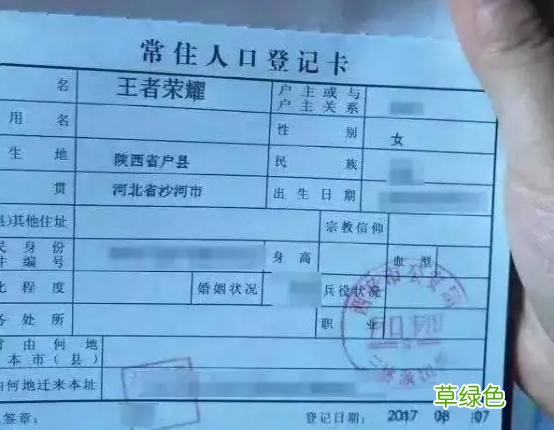 常住人口登记卡
名 王者荣耀 户主或与户主关系
用名 性别 女
生地 陕西省户县 民族
贯 河北省沙河市 出生日期
县)其他住址 宗教信仰
民身份
件编号 身高 血型
程度 婚姻状况 兵役状况
务处所 职业
由何地
本市(县)
由何地迁来本址
签章: 登记日期: 2017 08 07
草绿色